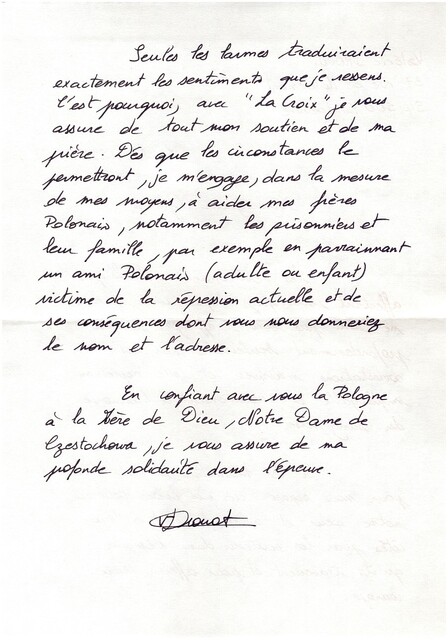 Seules les larmes traduiraient
exactement les sentiments que je ressens.
C'est pourquoi, avec "La Croix" je vous
assure de tout mon soutien et de ma
prière. Dès que les circonstances le
permettront, je m'engage, dans la mesure
de mes moyens, à aider mes frères
Polonais, notamment les prisonniers et
leur famille, par exemple en parrainnant
un ami Polonais (adulte ou enfant)
victime de la répression actuelle et de
ses conséquences dont vous nous donneriez
le nom et l'adresse.
En confiant avec vous la Pologne
à la Mère de Dieu, Notre Dame de
Czestochowa, je vous assure de ma
profonde solidarité dans l'épreuve.